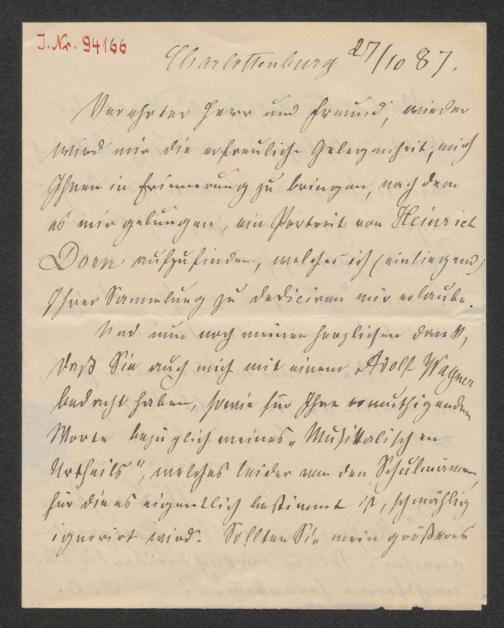 J. Nr. 94166
Charlottenburg 27/10 87.
Verehrter Herr und Freund, wieder
wird mir die erfreuliche Gelegenheit, mich
Ihnen in Erinnerung zu bringen, nach dem
es mir gelungen, ein Porträt von Heinrich
Dorn aufzufinden, welches ich (einliegend)
Ihrer Sammlung zu dediciren mir erlaube.
Und nun noch meinen herzlichen Dank,
daß Sie auch mich mit einem Adolf Wagner
bedacht haben, sowie für Ihre ermuthigenden
Worte bezüglich meines „Musikalischen
Urtheils“, welches leider von den Schulmännern,
für die es eigentlich bestimmt ist, schmählig
ignorirt wird. Sollten Sie mein größeres